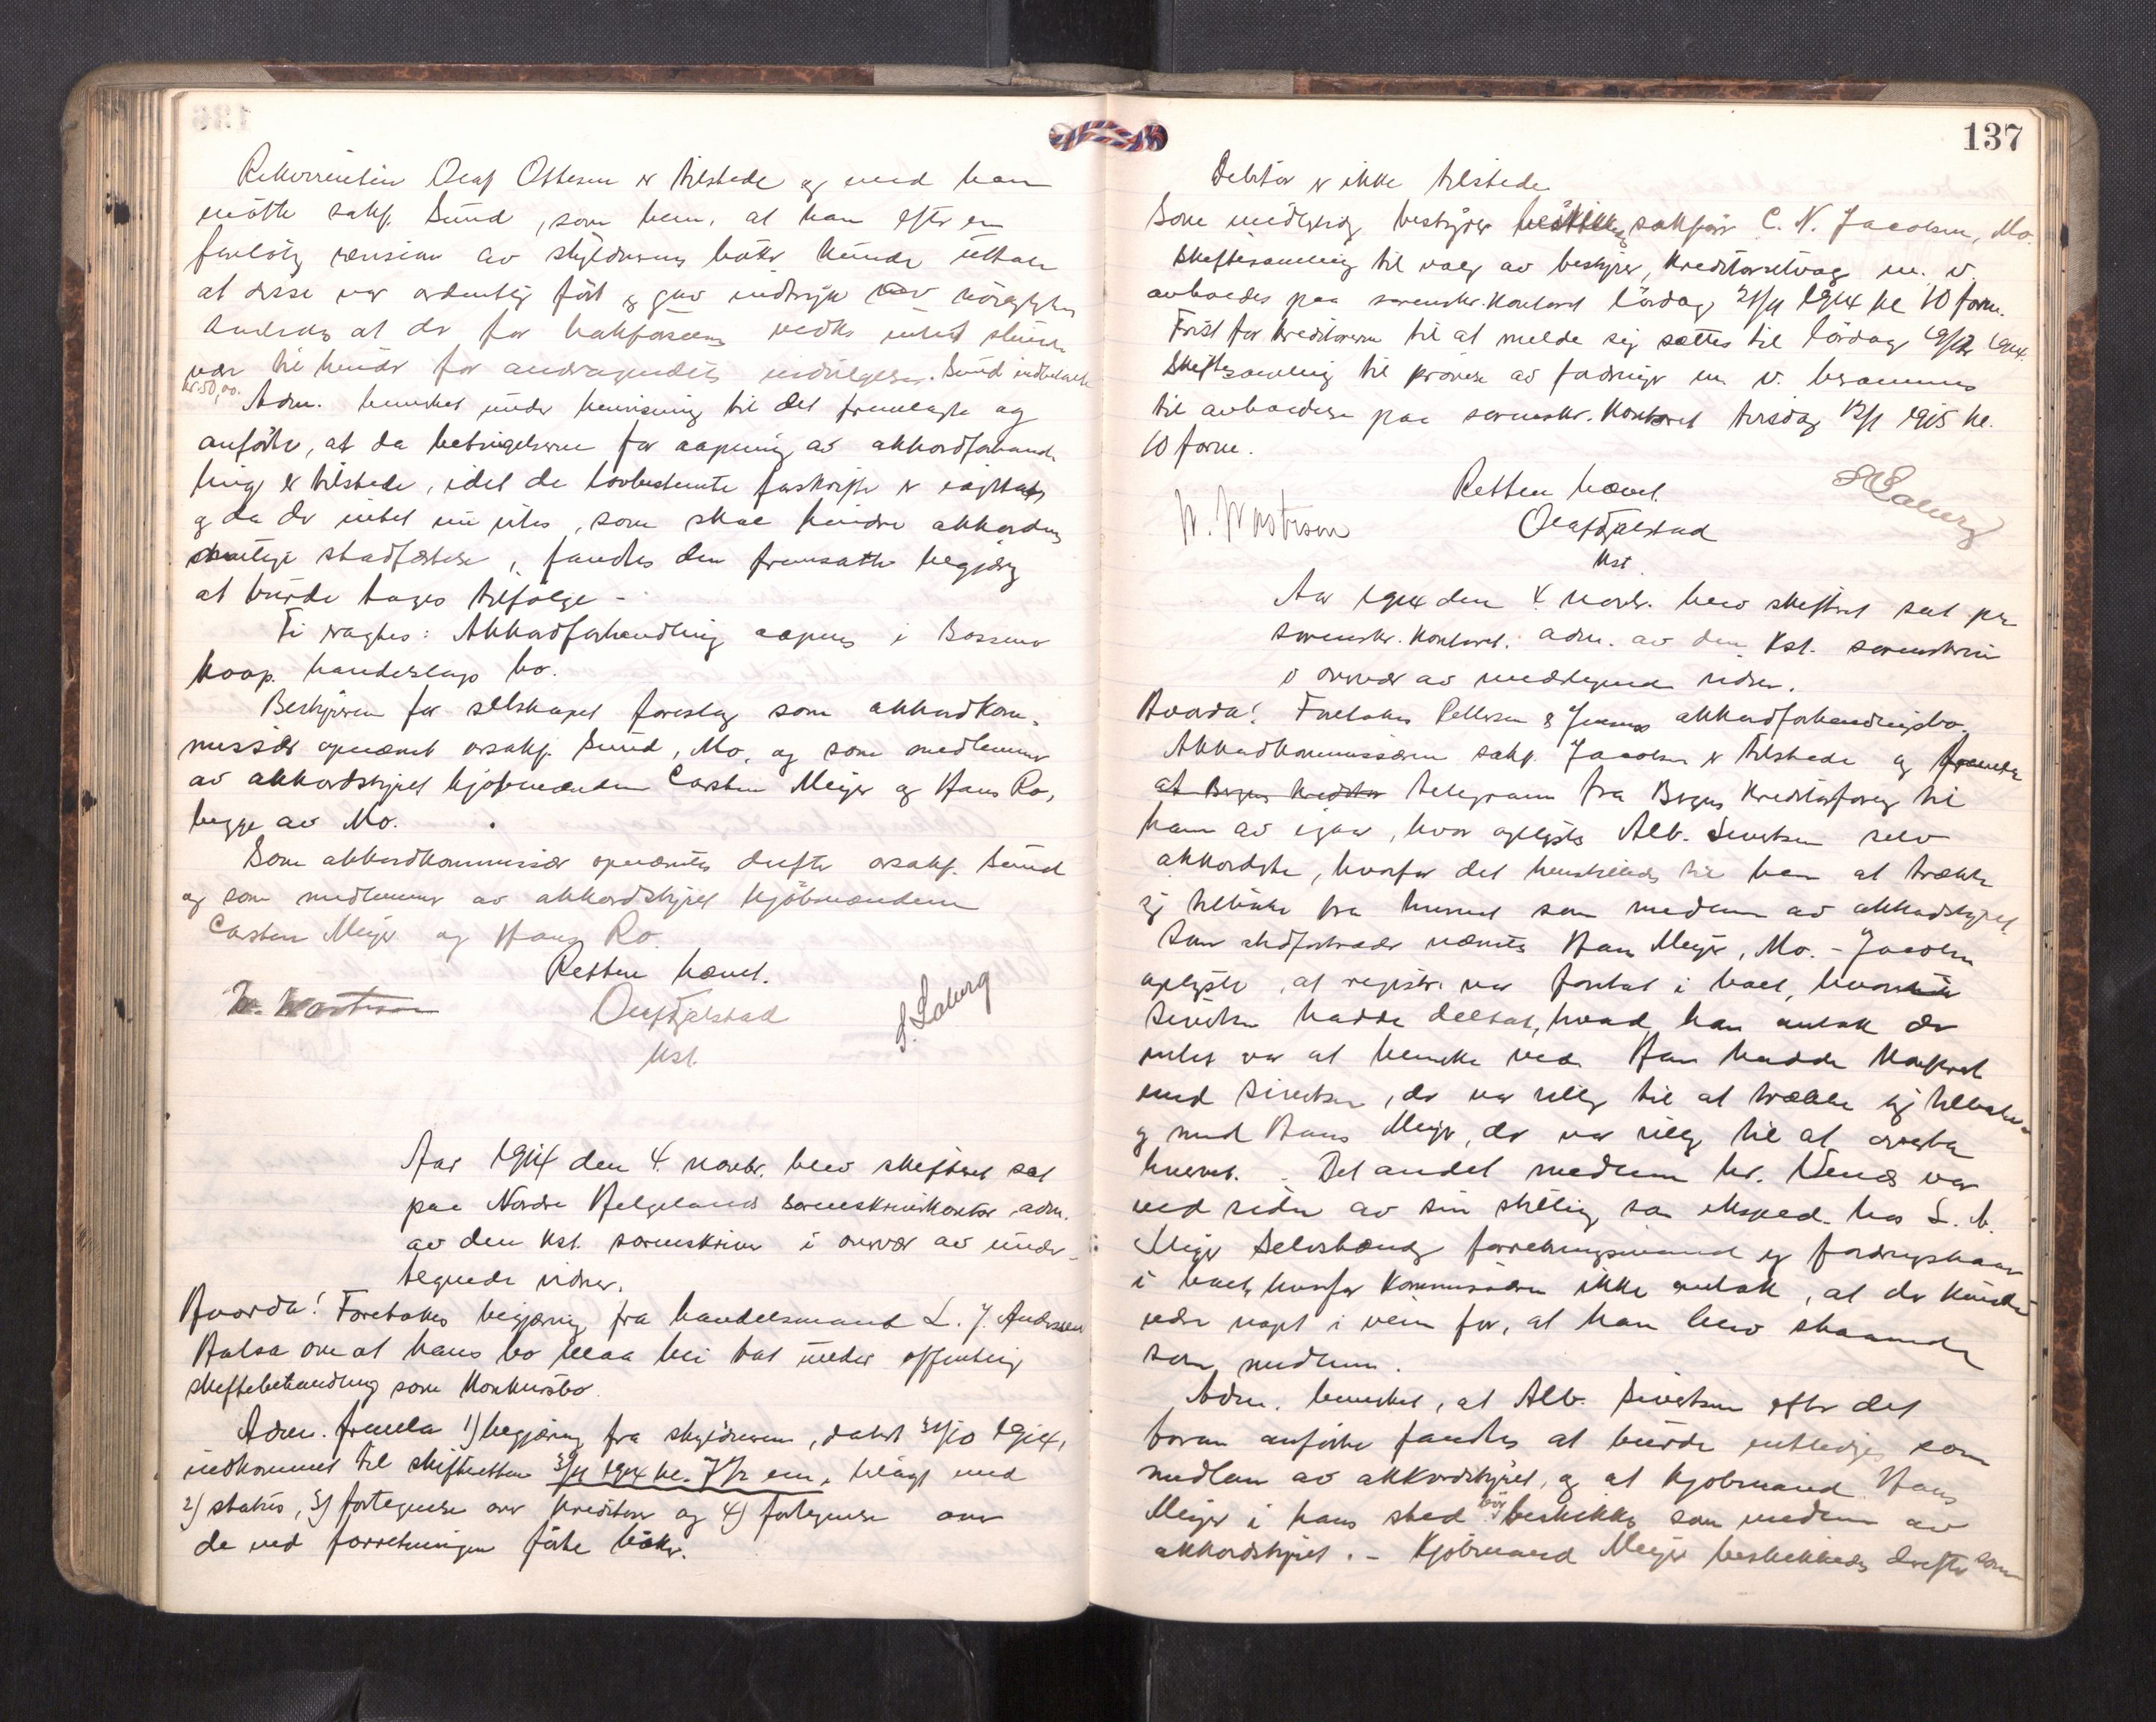 Rekvirenten Olaf Ottesen er tilstede og med ham
møtte sakf. Sund, som bem. at han efter en
foreløbig revision av skyldnerens bøker kunde uttale
at disse var ordentlig ført og gav indtryk av nøiagtighed
at der for vedk. intet
var til hinder for andragendets indvilgelse. Sund indbetalte
kr. 50,00.
Adm. bemerket under henvisning til det fremlagte og
anførte, at da betingelserne for aapning av akkordforhand-
ling er tilstede, idet de lovbestemte forskrifter er iagttat
og da der intet nu sees, som skal hindre akkordens
stadfæstelse, fandtes den fremsatte begjæring
at burde tages tilfølge -
Ti vagtes: Akkordforhandling aapnes i Bossmo
koop. handelslags bo.
Bestyreren for selskapet foreslog som akkordkom-
missær opnævnt orsakf. Sund, Mo, og som medlemmer
av akkordstyret kjøbmændene Carsten Meyer og Hans Ro,
begge av Mo.
Som akkordkommissær opnævntes derefter orsakf. Sund
og som medlemmer av akkordstyret kjøbmændene
Carsten Meyer og Hans Ro.
Retten hævet.
Olaf Fjalstad
Kst.
S. Laberg
Aar 1914 den 4. novbr. blev skifteret sat
paa Nordre Helgelands sorenskriverkontor, adm.
av den kst. sorenskriver i overvær av under-
tegnede vidner.
Hvorda! Foretokes begjæring fra handelsmand L. J. Andersen
Aalsa om at hans bo maa bli tat under offentlig
skiftebehandling som konkursbo.
Adm. fremla 1) begjæring fra skyldneren, datert 31/10 1914,
indkommet til skifteretten 3/11 1914 kl. 7 1/2 em., bilagt med
2) status, 3) fortegnelse over kreditorer og 4) fortegnelse over
de ved forretningen førte bøker.
137
Debitor er ikke tilstede.
Som midlertidig bestyrer beskikkes sakfører C. N. Jacobsen, Mo.
Skiftesamling til valg av bestyrer, kreditorutvalg m. v.
avholdes paa sorenskr.kontoret lørdag 21/11 1914 kl 10 form.
Frist for kreditorerne til at melde sig sættes til lørdag 19/12 1914.
Skiftesamling til prøvelse av fordringer m. v. berammes
til avholdelse paa sorenskr.kontoret tirsdag 12/1 1915 kl.
10 form.
Retten hævet.
Olaf Fjalstad
Kst.
S. Laberg
Aar 1914 den 4. novbr. blev skifteret sat paa
sorenskr.kontoret. adm. av den kst. sorenskriver
i overvær av medtegnende vidner.
Hvorda! Foretokes Pettersen & Jensens akkordforhandlingsbo.
Akkordkommissæren sakf. Jacobsen er tilstede og fremla
at Bergens kreditor telegram fra Bergens Kreditorforening til
ham av igaar, hvor oplystes Alb. Sivertsen selv
akkorderte, hvorfor det henstilledes til ham at trække
sig tilbake fra hvervet som medlem av akkordstyret
Som stedfortræder nævntes Hans Meyer, Mo. - Jacobsen
oplyste, at registr. var foretat i boet, hvori
Sivertsen hadde deltat, hvad han antok der
intet var at bemerke ved. Han hadde konferert
med Sivertsen, der var villig til at trække sig tilbake
og med Hans Meyer, der var villig til at overta
hvervet. - Det andet medlem hr. var
ved siden av sin stilling som eksped. hos L. A.
Meyer selvstændig forretningsmand og fordringshaver
i boet, hvorfor kommissæren ikke antok, at der kunde
være noget i veien for, at han blev staaende
som medlem.
Adm. bemerket, at Alb. Sivertsen efter det
foran anførte fandtes at burde entlediges som
medlem av akkordstyret, og at kjøbmand Hans
Meyer i hans sted bør beskikkes som medlem av
akkordstyret. - Kjøbmand Meyer beskikkedes derefter som